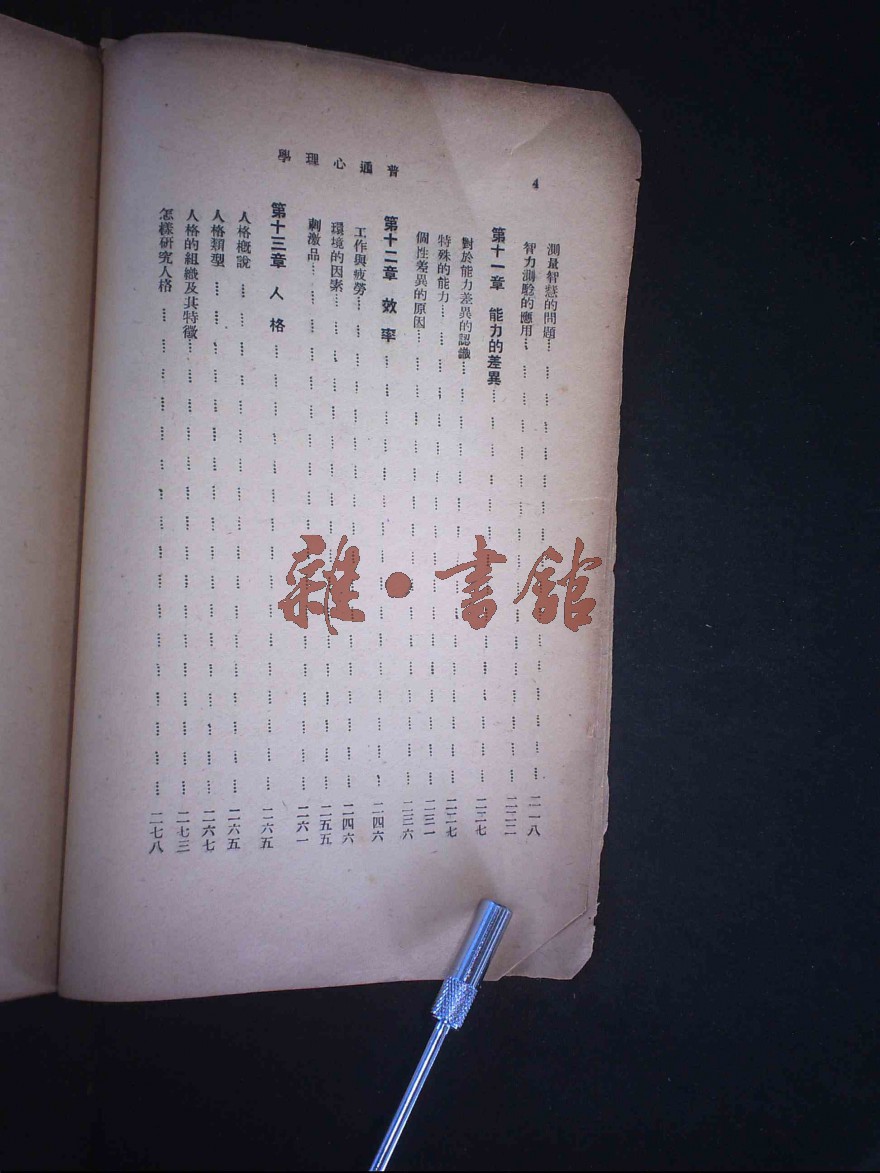 4
普通心理學
測量智慧的問題 二一八
智力測驗的應用 二二二
第十一章 能力的差異 二二七
對於能力差異的認識 二二七
特殊的能力 二三一
個性差異的原因 二三六
第十二章 效率 二四六
工作與疲勞 二四六
環境的因素 二五五
刺激品 二六一
第十三章 人格 二六五
人格概說 二六五
人格類型 二六七
人格的組織及其特徵 二七三
怎樣研究人格 二七八
雜·書館